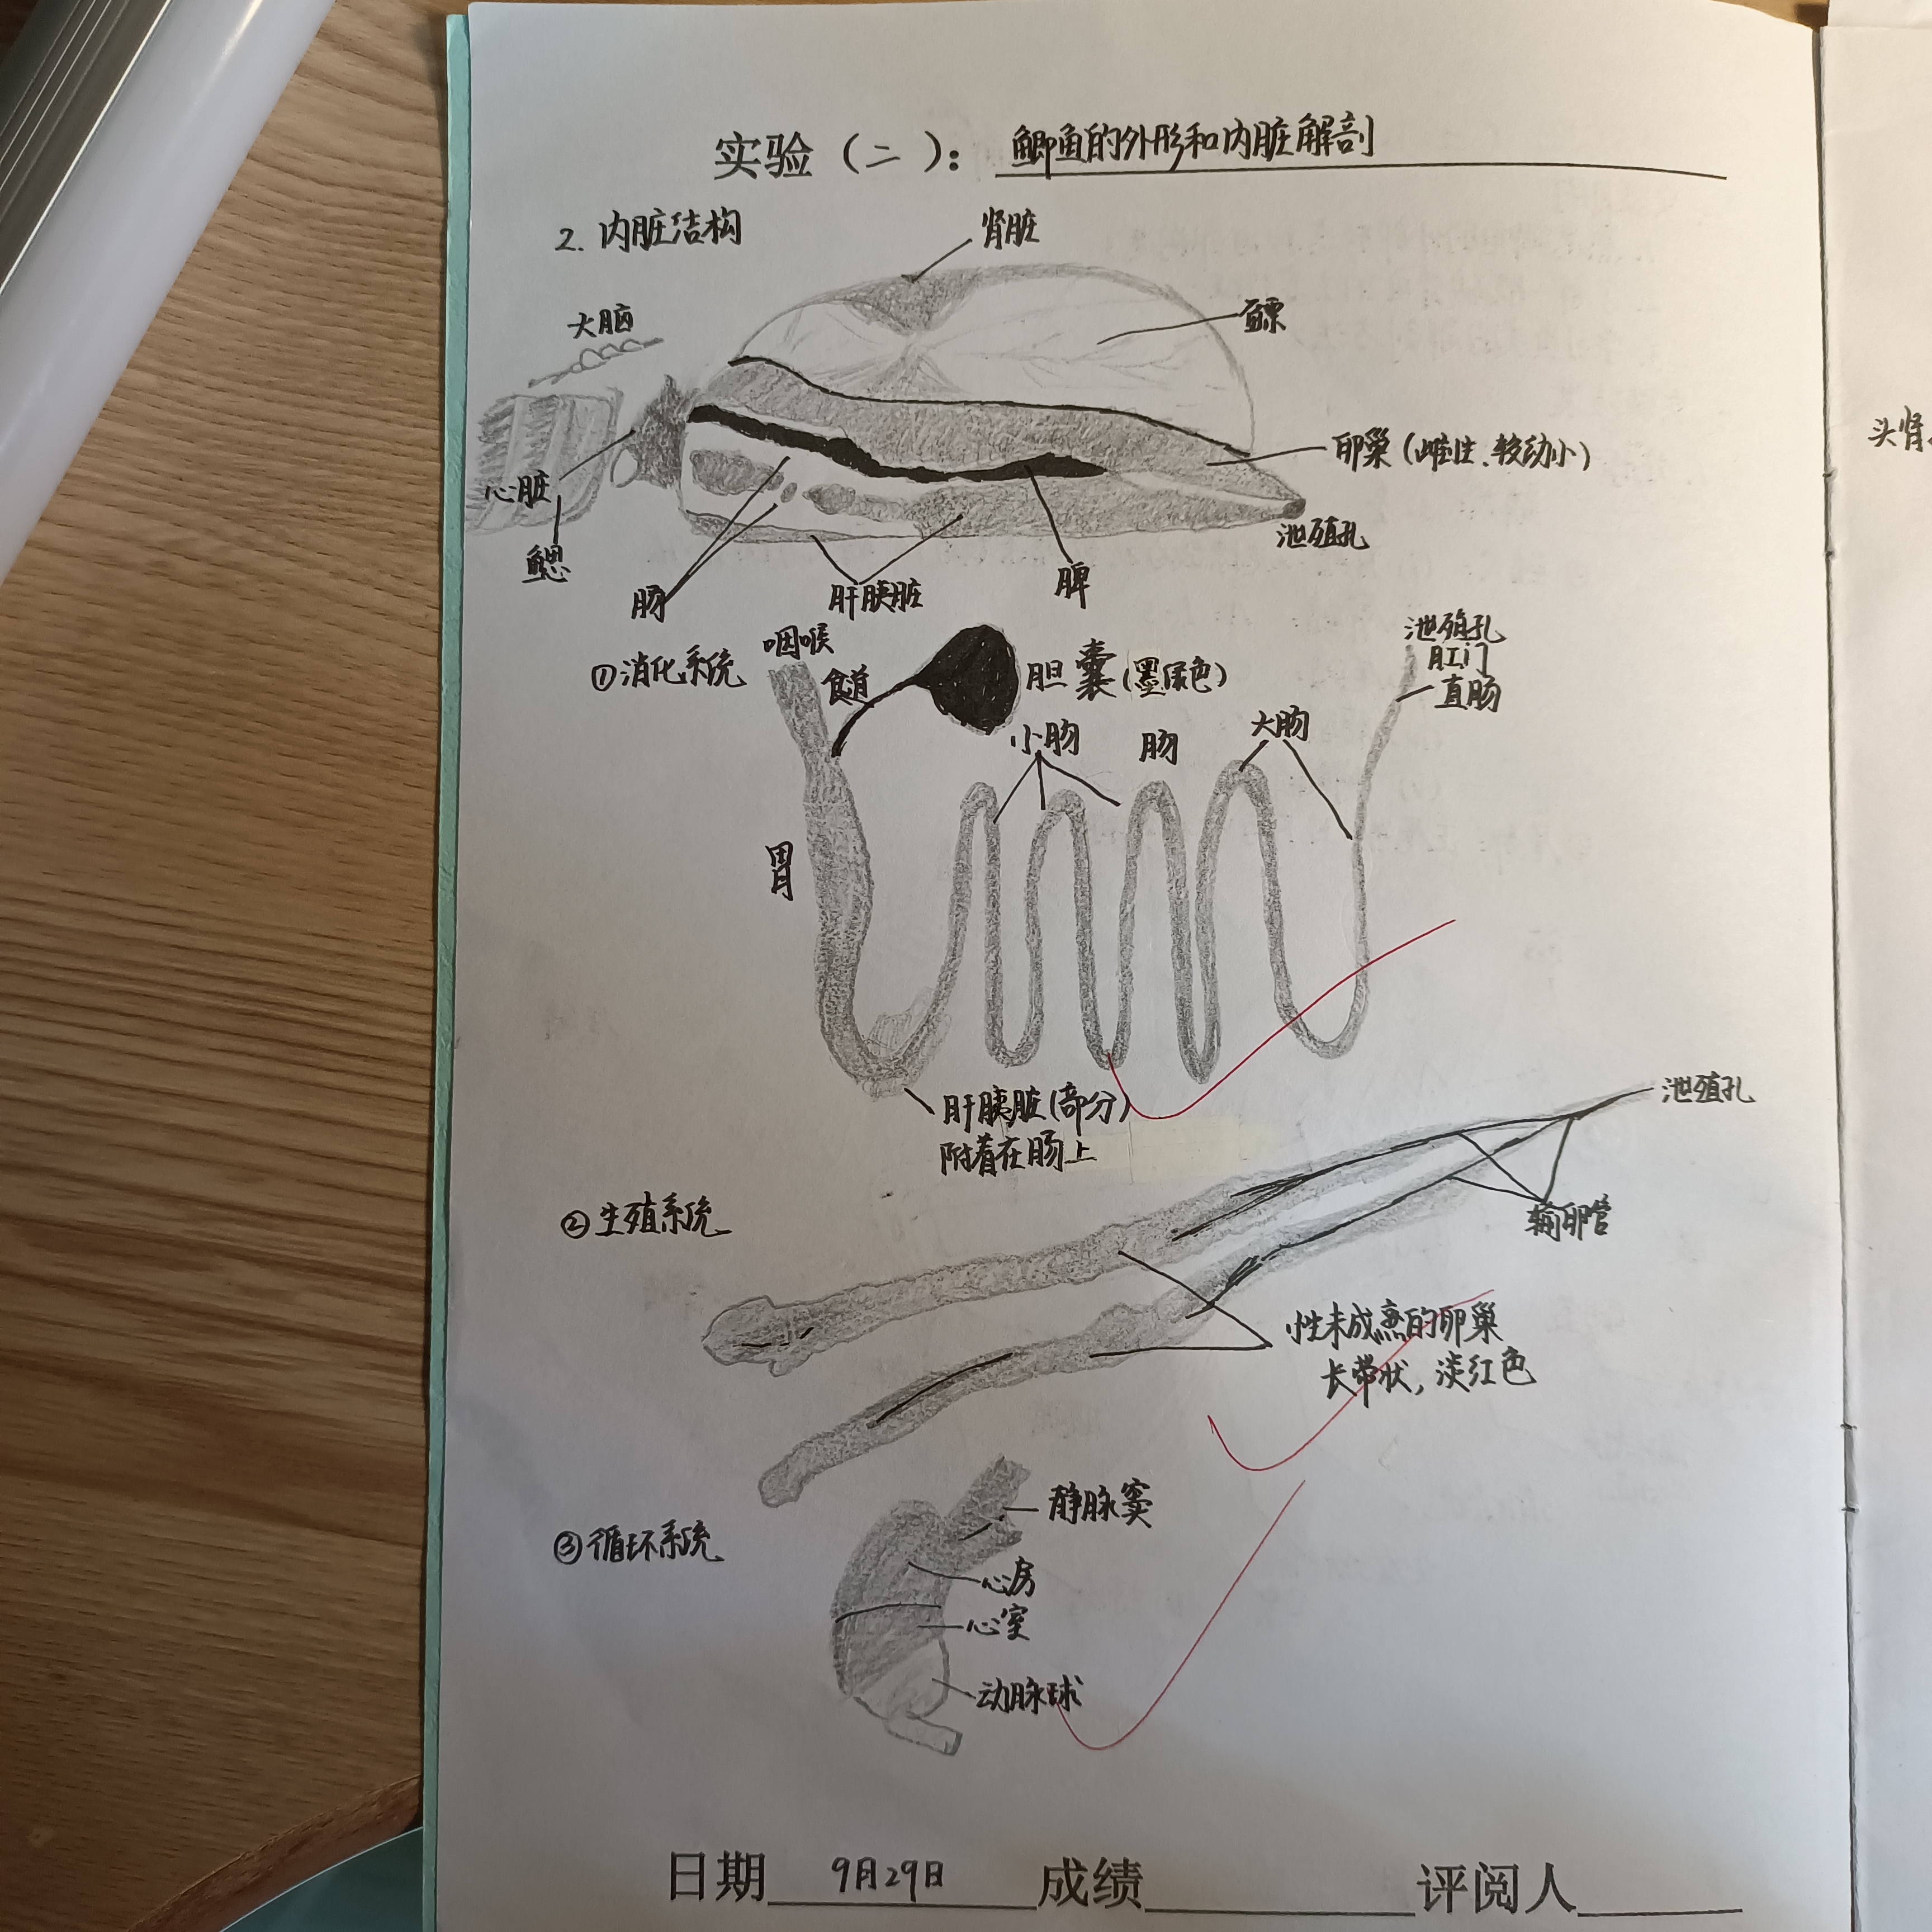 实验（二）：鲫鱼的外形和内脏解剖
2. 内脏结构
肾脏
大脑
鳔
卵巢(雌性、较幼小)
心脏
泄殖孔
鳃
肠
肝胰脏
脾
①消化系统
咽喉
食道
胆囊(墨绿色)
泄殖孔
肛门
直肠
小肠
肠
大肠
胃
肝胰脏(部分)
附着在肠上
②生殖系统
泄殖孔
输卵管
性未成熟的卵巢
长带状，淡红色
③循环系统
静脉窦
心房
心室
动脉球
日期 9月29日 成绩 评阅人
头肾